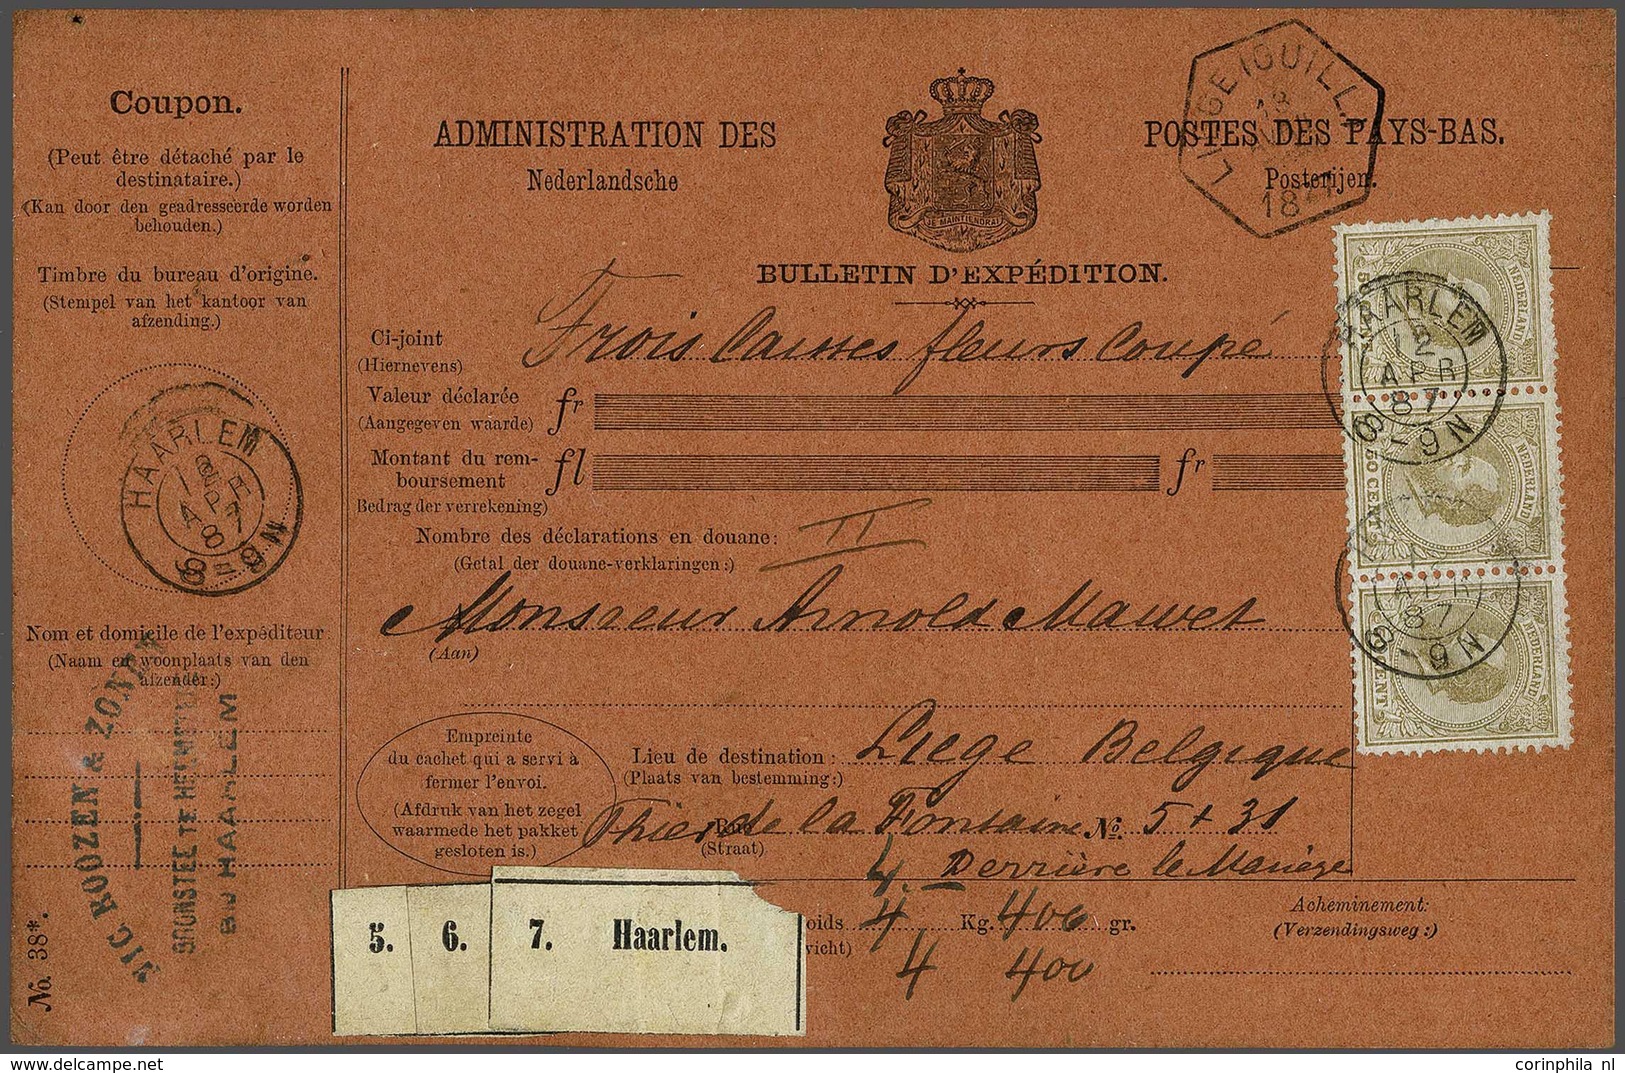 Coupon.
(Peut être détaché par le
destinataire.)
(Kan door den geadresseerde worden
behouden.)
Timbre du bureau d'origine.
(Stempel van het kantoor van
afzending.)
HAARLEM
8-9N
Nom et domicile de l'expéditeur:
(Naam en woonplaats van den
afzender:)
NIC. ROOZEN & ZONEN
BIJ HAARLEM
No. 38*.
ADMINISTRATION DES
POSTES DES PAYS-BAS.
Nederlandsche
Posterijen.
JE MAINTIENDRAI
BULLETIN D'EXPÉDITION.
Ci-joint
(Hiernevens)
Trois Caisses fleurs Coupé
Valeur déclarée
(Aangegeven waarde)
fr
Montant du rem-
boursement
(Bedrag der verrekening)
fl
fr
Nombre des déclarations en douane: II
(Getal der douane-verklaringen:)
Monsieur Arnold Mawet
(Aan)
Empreinte
du cachet qui a servi à
fermer l'envoi.
(Afdruk van het zegel
waarmede het pakket
gesloten is.)
Lieu de destination: Liege Belgique
(Plaats van bestemming:)
Thier de la Fontaine No. 5+31
(Straat)
Derrière le Manège
4.
oids 4 Kg. 400 gr.
wicht)
4 400
Acheminement:
(Verzendingsweg:)
5. 6. 7. Haarlem.
NEDERLAND
HAARLEM
12
APR
87
8-9N
NEDERLAND
50 CENT
APR
87
8-9N
NEDERLAND
CENT
www.delcampe.net
corinphila nl